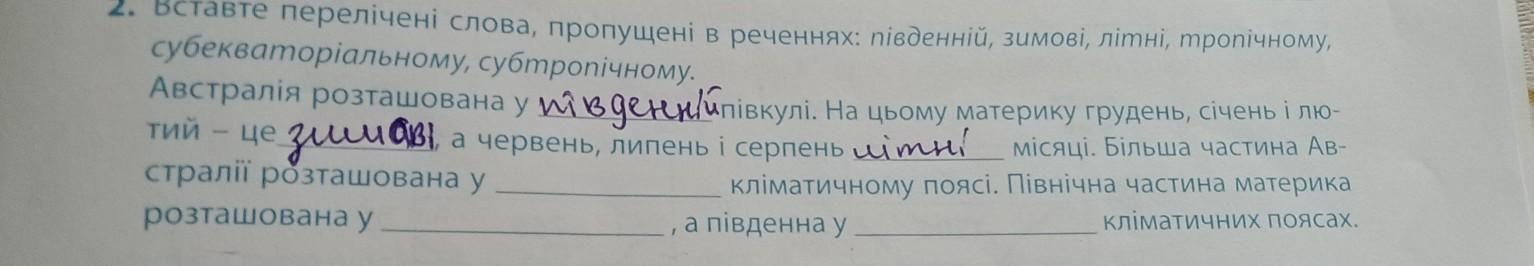 2. Вставте перелічені слова, пропущені в реченнях: південній, зимові, літні, тропічному,
субекваторіальному, субтропічному.
Австралія розташована у південній півкулі. На цьому материку грудень, січень і лю-
тий – це зимові, а червень, липень і серпень літні місяці. Більша частина Ав-
стралії розташована у ____________ кліматичному поясі. Північна частина материка
розташована у ____________, а південна у ____________ кліматичних поясах.